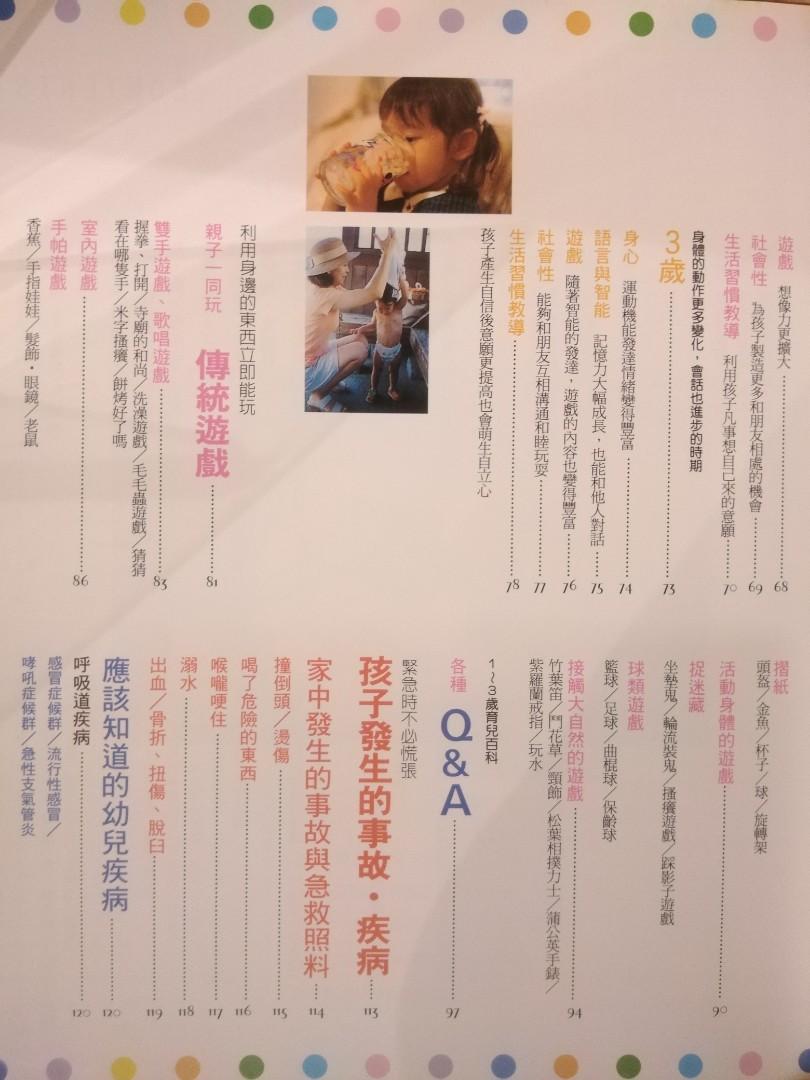 遊戲 想像力更擴大 68
社會性 為孩子製造更多和朋友相處的機會 69
生活習慣教導 利用孩子凡事想自己來的意願 70
身體的動作更多變化，會話也進步的時期
3歲 73
身心 運動機能發達情緒變得豐富 74
語言與智能 記憶力大幅成長，也能和他人對話 75
遊戲 隨著智能的發達，遊戲的內容也變得豐富 76
社會性 能夠和朋友互相溝通和睦玩耍 77
生活習慣教導 78
孩子產生自信後意願更提高也會萌生自立心
利用身邊的東西立即能玩
親子一同玩 傳統遊戲 81
雙手遊戲、歌唱遊戲 83
握拳、打開／寺廟的和尚／洗澡遊戲／毛毛蟲遊戲／猜猜
看在哪隻手／米字搔癢／餅烤好了嗎
室內遊戲 86
手帕遊戲
香蕉／手指娃娃／髮飾・眼鏡／老鼠
摺紙
頭盔／金魚／杯子／球／旋轉架
活動身體的遊戲 90
捉迷藏
坐墊鬼／輪流裝鬼／搔癢遊戲／踩影子遊戲
球類遊戲
籃球／足球／曲棍球／保齡球
接觸大自然的遊戲 94
竹葉笛／鬥花草／頸飾／松葉相撲力士／蒲公英手錶／
紫羅蘭戒指／玩水
1～3歲育兒百科
各種 Q&A 97
緊急時不必慌張
孩子發生的事故・疾病 113
家中發生的事故與急救照料 114
撞倒頭／燙傷 115
喝了危險的東西 116
喉嚨哽住 117
溺水 118
出血／骨折、扭傷、脫臼 119
應該知道的幼兒疾病 120
呼吸道疾病 120
感冒症候群／流行性感冒／
哮吼症候群／急性支氣管炎